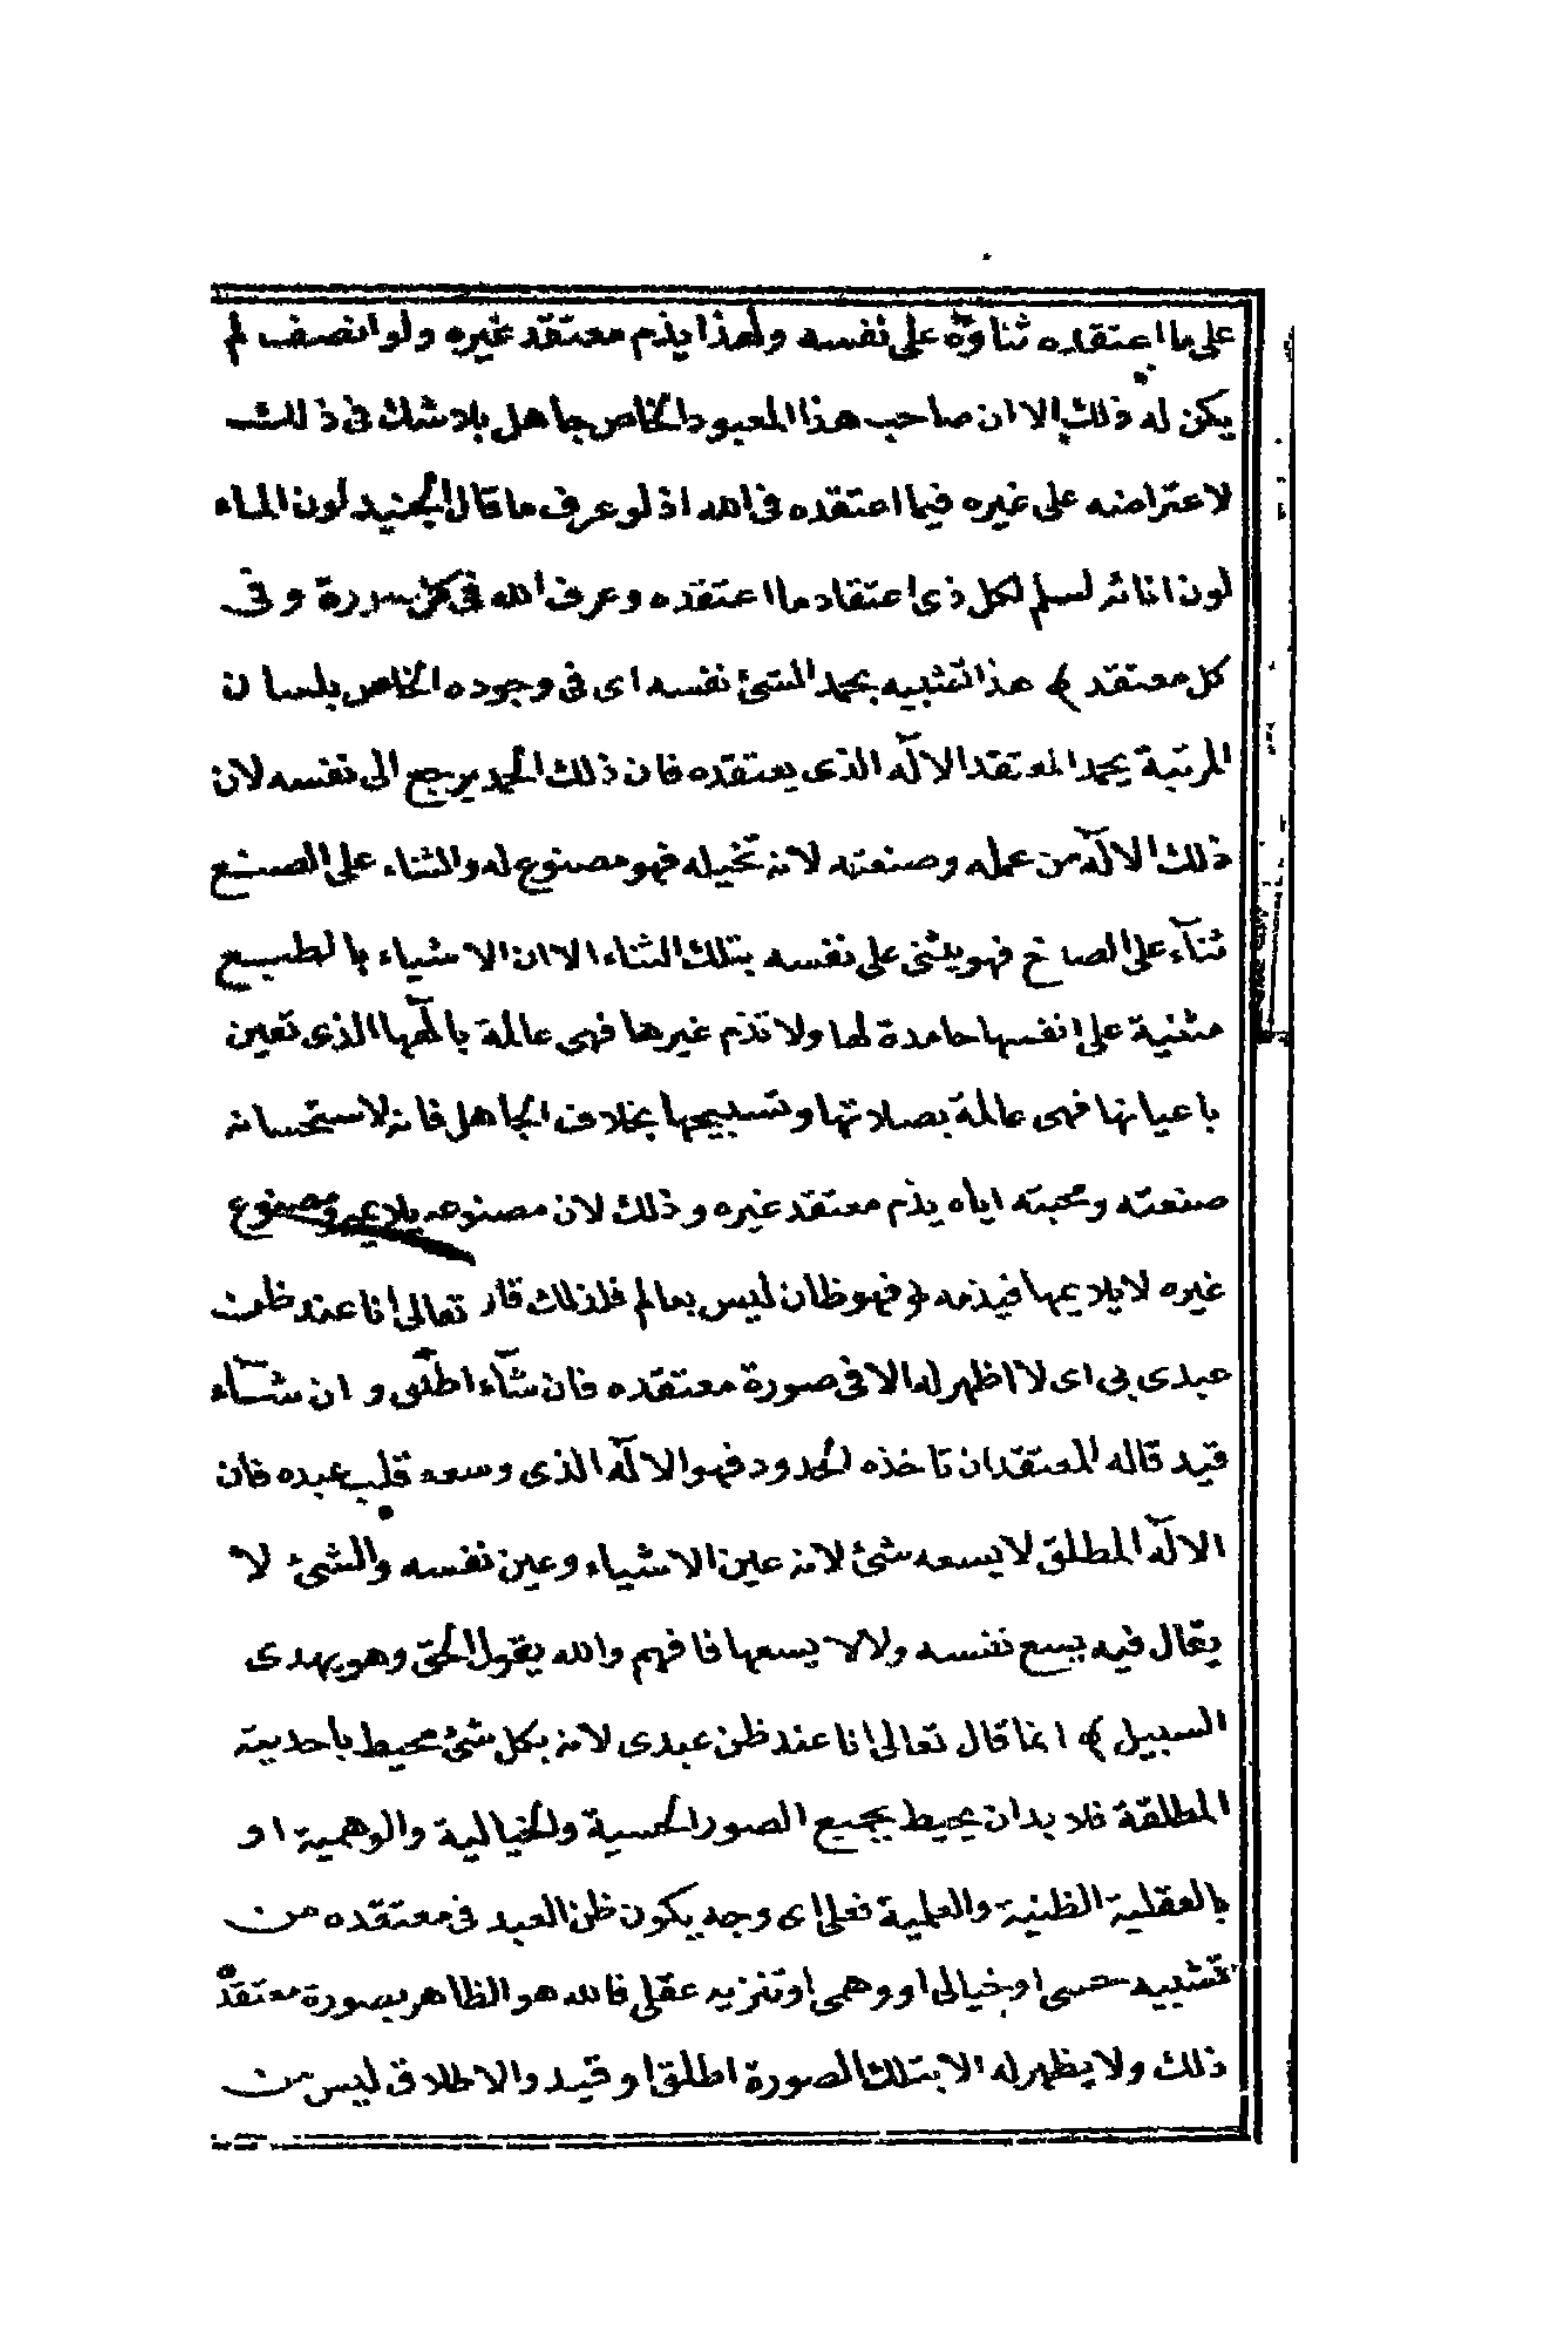 على ما اعتقده ثناؤه على نفسه ولهذا يذم معتقد غيره ولو انصف لم
يكن له ذلك الا ان صاحب هذا المعبود الخاص جاهل بلا شك فى ذلك
لاعتراضه على غيره فيما اعتقده فى الله اذ لو عرف ما قال الجنيد لون الماء
لون انائه لسلم لكل ذى اعتقاد ما اعتقده وعرف الله فى كل صورة وفى
كل معتقد ﴾ هذا تشبيه بحمد الشئ نفسه اى فى وجوده الخاص بلسان
المرتبة يحمد المعتقد الالٓه الذى يعتقده فان ذلك الحمد يرجع الى نفسه لان
ذلك الالٓه من عمله وصنعته لانه تخيله فهو مصنوع له والثناء على الصنع
ثنآء على الصانع فهو يثنى على نفسه بتلك الثناء الا ان الاشياء بالطبع
مثنية على انفسها حامدة لها ولا تذم غيرها فهى عالمة بالٓهها الذى تعين
باعيانها فهى عالمة بصلاتها وتسبيحها بخلاف الجاهل فانه لاستحسانه
صنعته ومحبته اياه يذم معتقد غيره وذلك لان مصنوعه يلايمه ومصنوع
غيره لا يلايمها فيذمه ﴿ فهو ظان ليس بعالم فلذلك قال تعالى انا عند ظن
عبدى بى اى لا اظهر له الا فى صورة معتقده فان شآء اطلق وان شآء
قيد فاله المعتقدان تاخذه الحدود فهو الالٓه الذى وسعه قلب عبده فان
الالٓه المطلق لا يسعه شئ لانه عين الاشياء وعين نفسه والشئ لا
يقال فيه يسع نفسه ولا لا يسعها فافهم والله يقول الحق وهو يهدى
السبيل ﴾ انما قال تعالى انا عند ظن عبدى لانه بكل شئ محيط باحديته
المطلقة فلا بد ان يحيط بجميع الصور الحسية والخيالية والوهمية او
بالعقلية الظنية والعلمية فعلى اى وجه يكون ظن العبد فى معتقده من
تشبيه حسى او خيالى او وهمى او تنزيه عقلى فالله هو الظاهر بصورة معتقده
ذلك ولا يظهر له الا بتلك الصورة اطلق او قيد والاطلاق ليس من